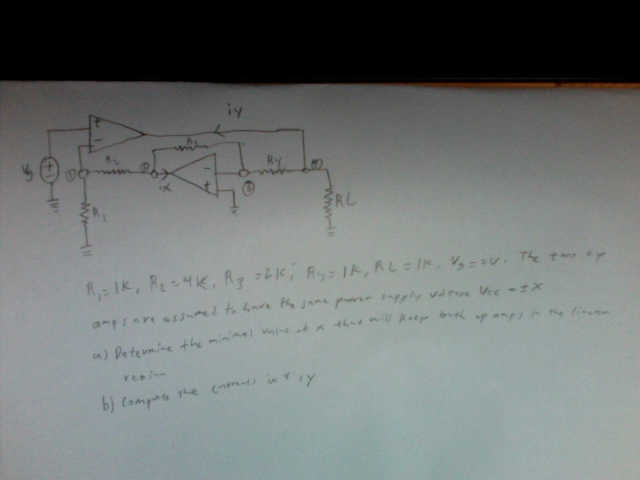 iy
+
-
R3
R2
R4
①
②
ix
-
+
③
④
Vg
+
-
R1
RL
R1=1K, R2=4K, R3=2K, R4=1K, RL=1K. Vg=2V. The two op
amps are assumed to have the same power supply voltage Vcc = ±X
a) Determine the minimal value of x that will keep both op amps in the linear
region
b) compute the currents ix & iy